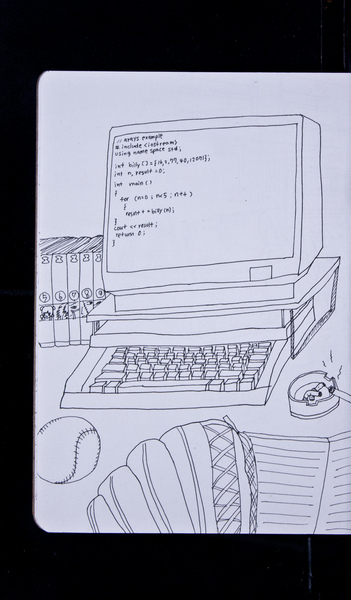 // arrays example
# include <iostream>
using name space std;
int billy [] = {16,2,77,40,12071};
int n, result = 0;
int main ()
{
for (n=0 ; n<5 ; n++)
{
result + = billy [n];
}
cout << result;
return 0;
}
5 6 7 8 9